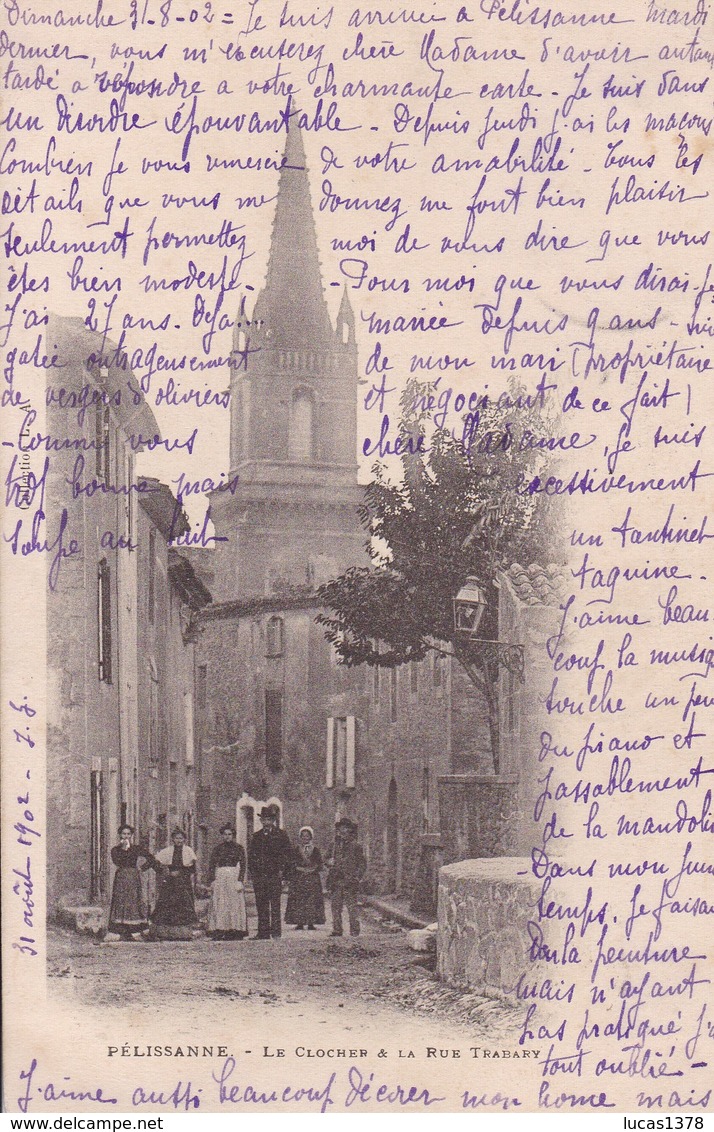 Dimanche 31-8-02 = Je suis arrivée à Pélissanne Mardi
dernier, vous m'excuserez chère Madame d'avoir autant
tardé à répondre à votre charmante carte - Je suis dans
un désordre épouvantable - Depuis Jeudi j'ai les maçons
Combien je vous remercie de votre amabilité - Tous les
détails que vous me donnez me font bien plaisir
seulement permettez moi de vous dire que vous
êtes bien modeste - - Pour moi que vous dirai-je
J'ai 27 ans. Déjà!... mariée depuis 9 ans - suis
gatée outrageusement de mon mari (propriétaire
de vergers d'oliviers et négociant de ce fait)
- Comme vous chère Madame, je suis
trop bonne mais excessivement
soupe au lait un tantinet
taquine -
J'aime beau
coup la musiq
touche un peu
du piano et
passablement
de la mandoli
- Dans mon jeune
temps. Je faisai
de la peinture
mais n'ayant
pas pratiqué j'ai
tout oublié -
J'aime aussi beaucoup décorer mon home mais
31 août 1902 -
Collection
PÉLISSANNE. - LE CLOCHER & LA RUE TRABARY
lucas1378